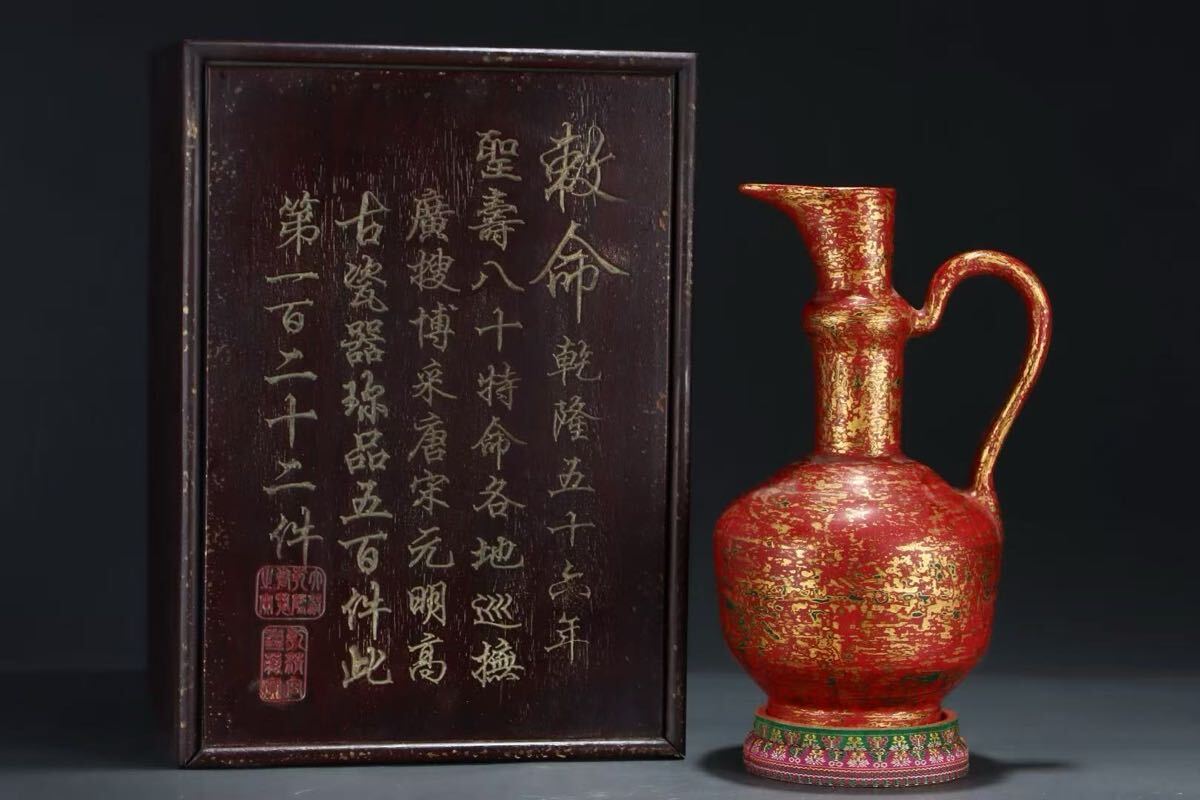 敕命乾隆五十六年
聖壽八十特命各地巡撫
廣搜博采唐宋元明高
古瓷器珎品五百件此
第一百二十二件